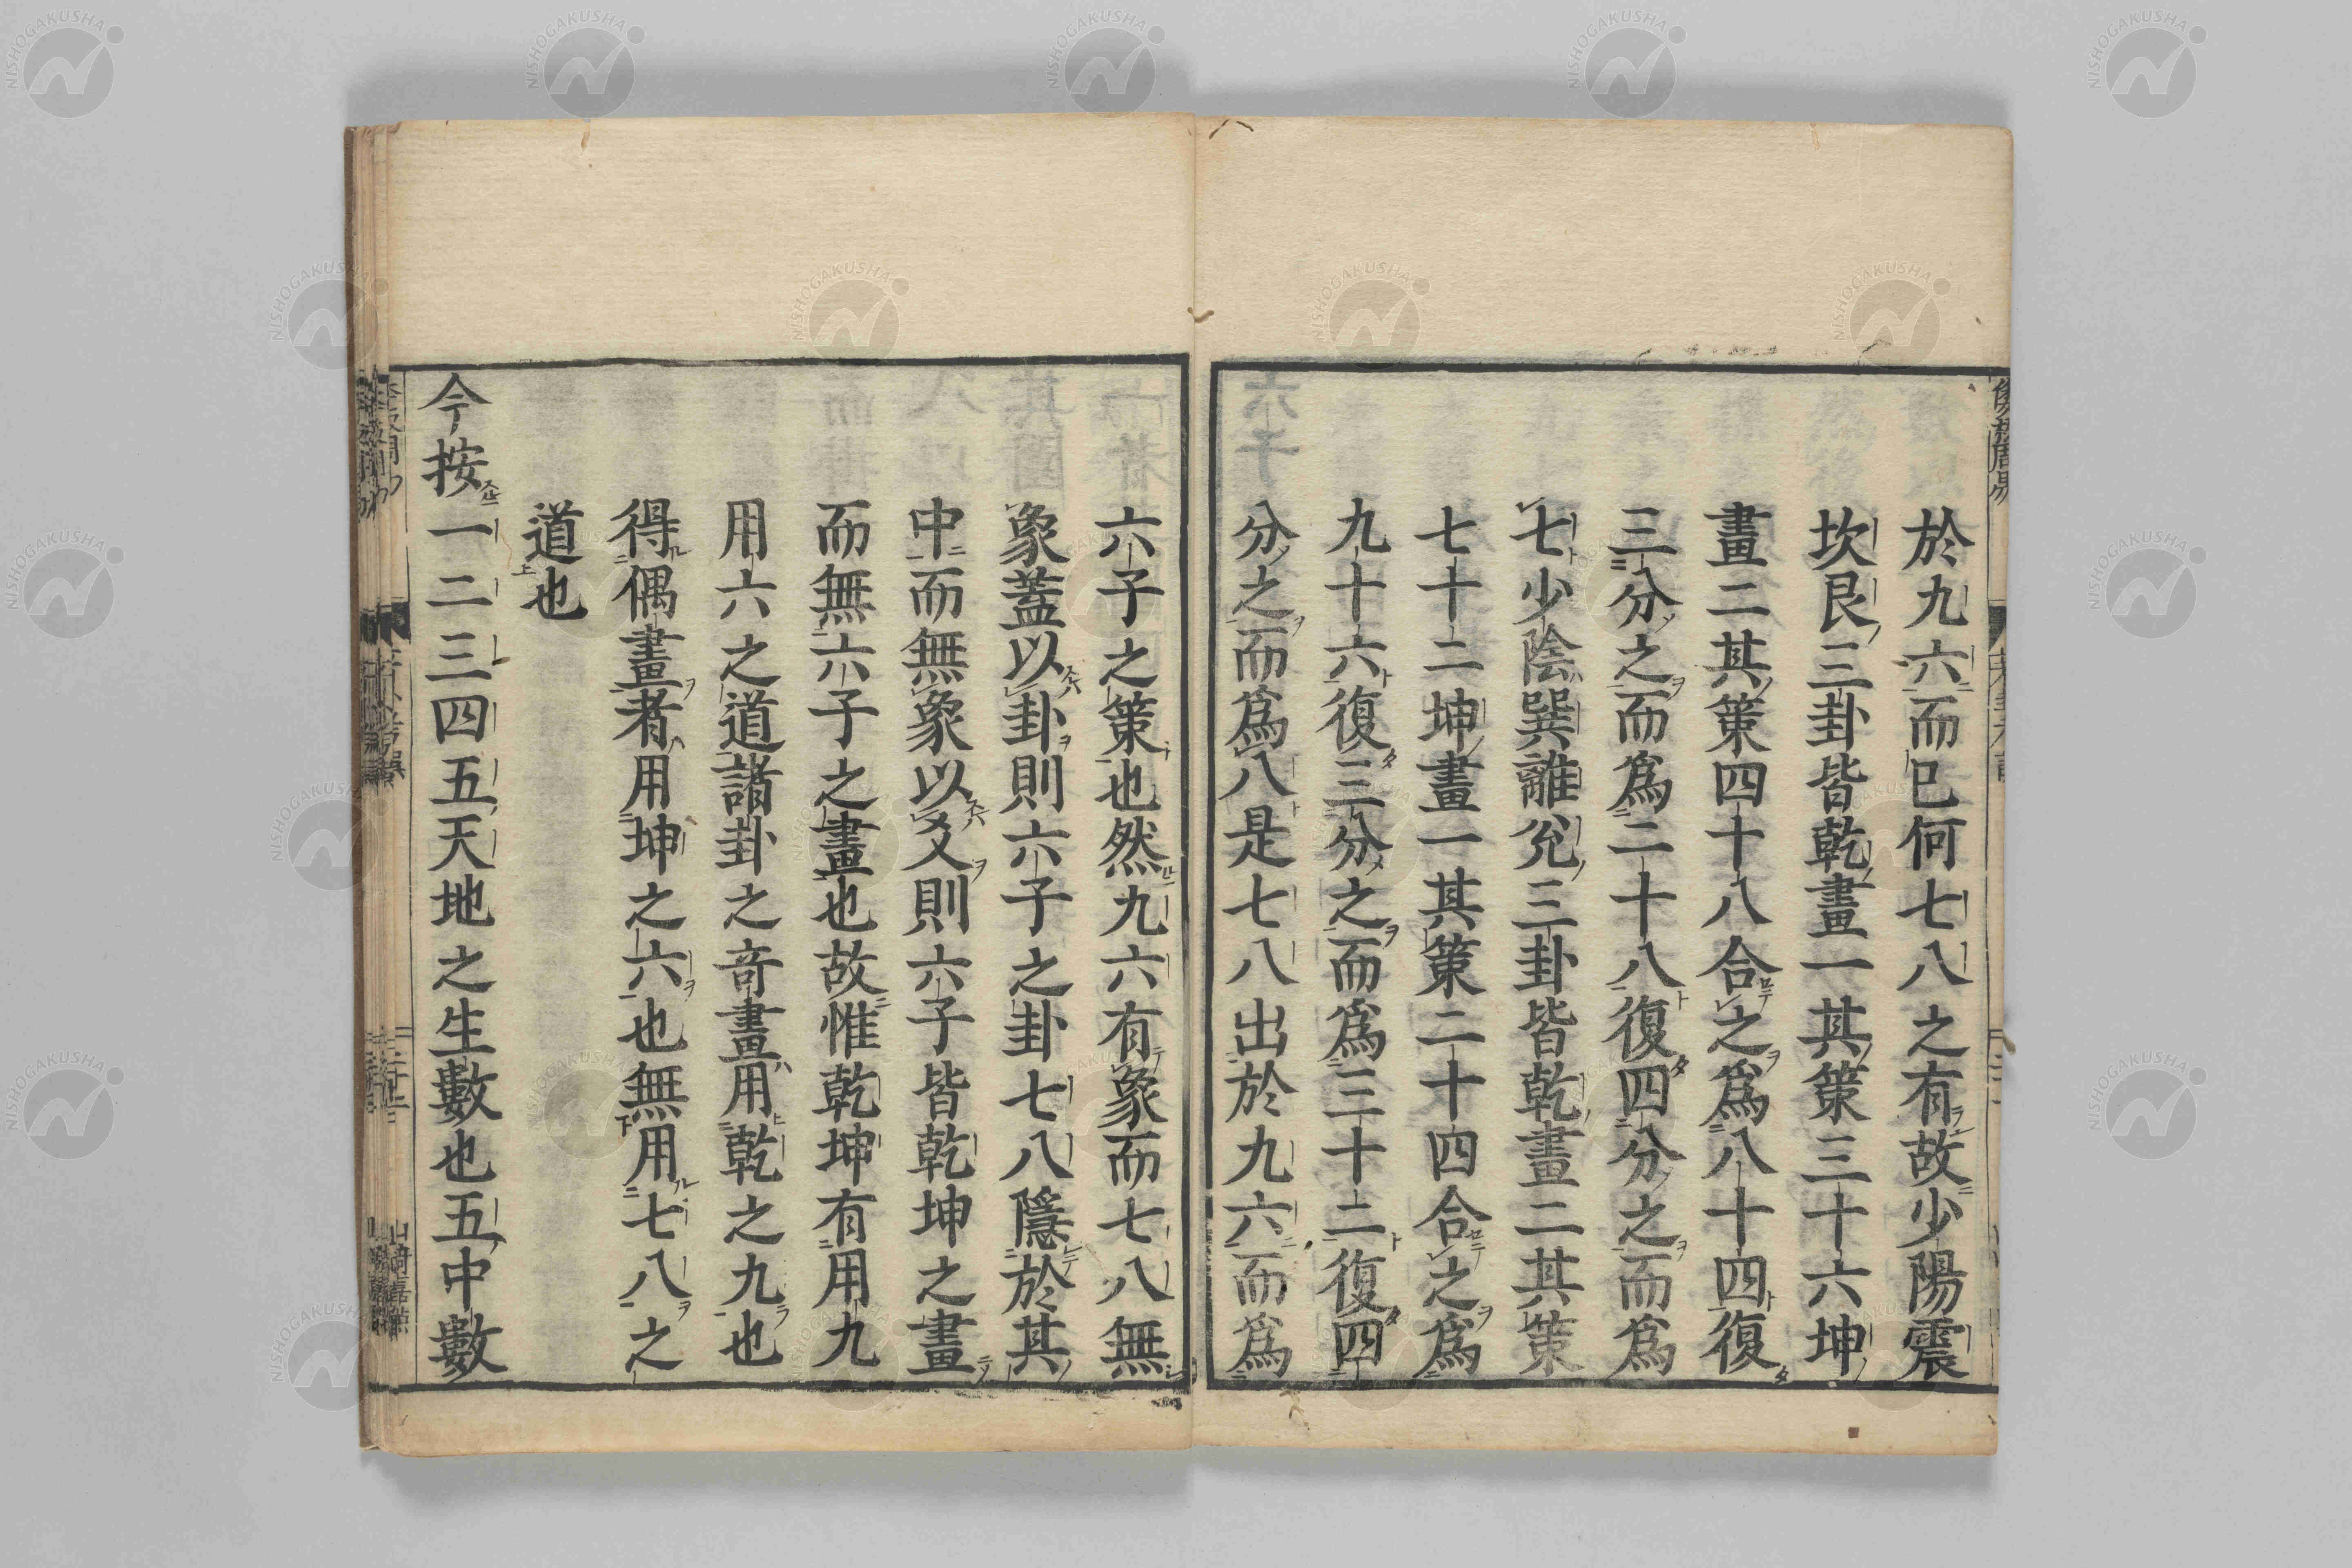 於九六而已何七八之有故少陽震
坎艮三卦皆乾畫一其策三十六坤
畫二其策四十八合之爲八十四復
三分之而爲二十八復四分之而爲
七少陰巽離兊三卦皆乾畫二其策
七十二坤畫一其策二十四合之爲
九十六復三分之而爲三十二復四
分之而爲八是七八出於九六而爲
六子之策也然九六有象而七八無
象蓋以卦則六子之卦七八隱於其
中而無象以爻則六子皆乾坤之畫
而無六子之畫也故惟乾坤有用九
用六之道諸卦之竒畫用乾之九也
得偶畫者用坤之六也無用七八之
道也
今按一二三四五天地之生數也五中數
NISHOGAKUSHA